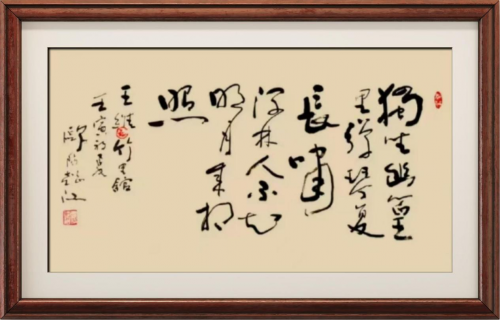 獨坐幽篁
里彈琴复
長嘯
深林人不知
明月来相
照
王維竹里館
壬寅初夏